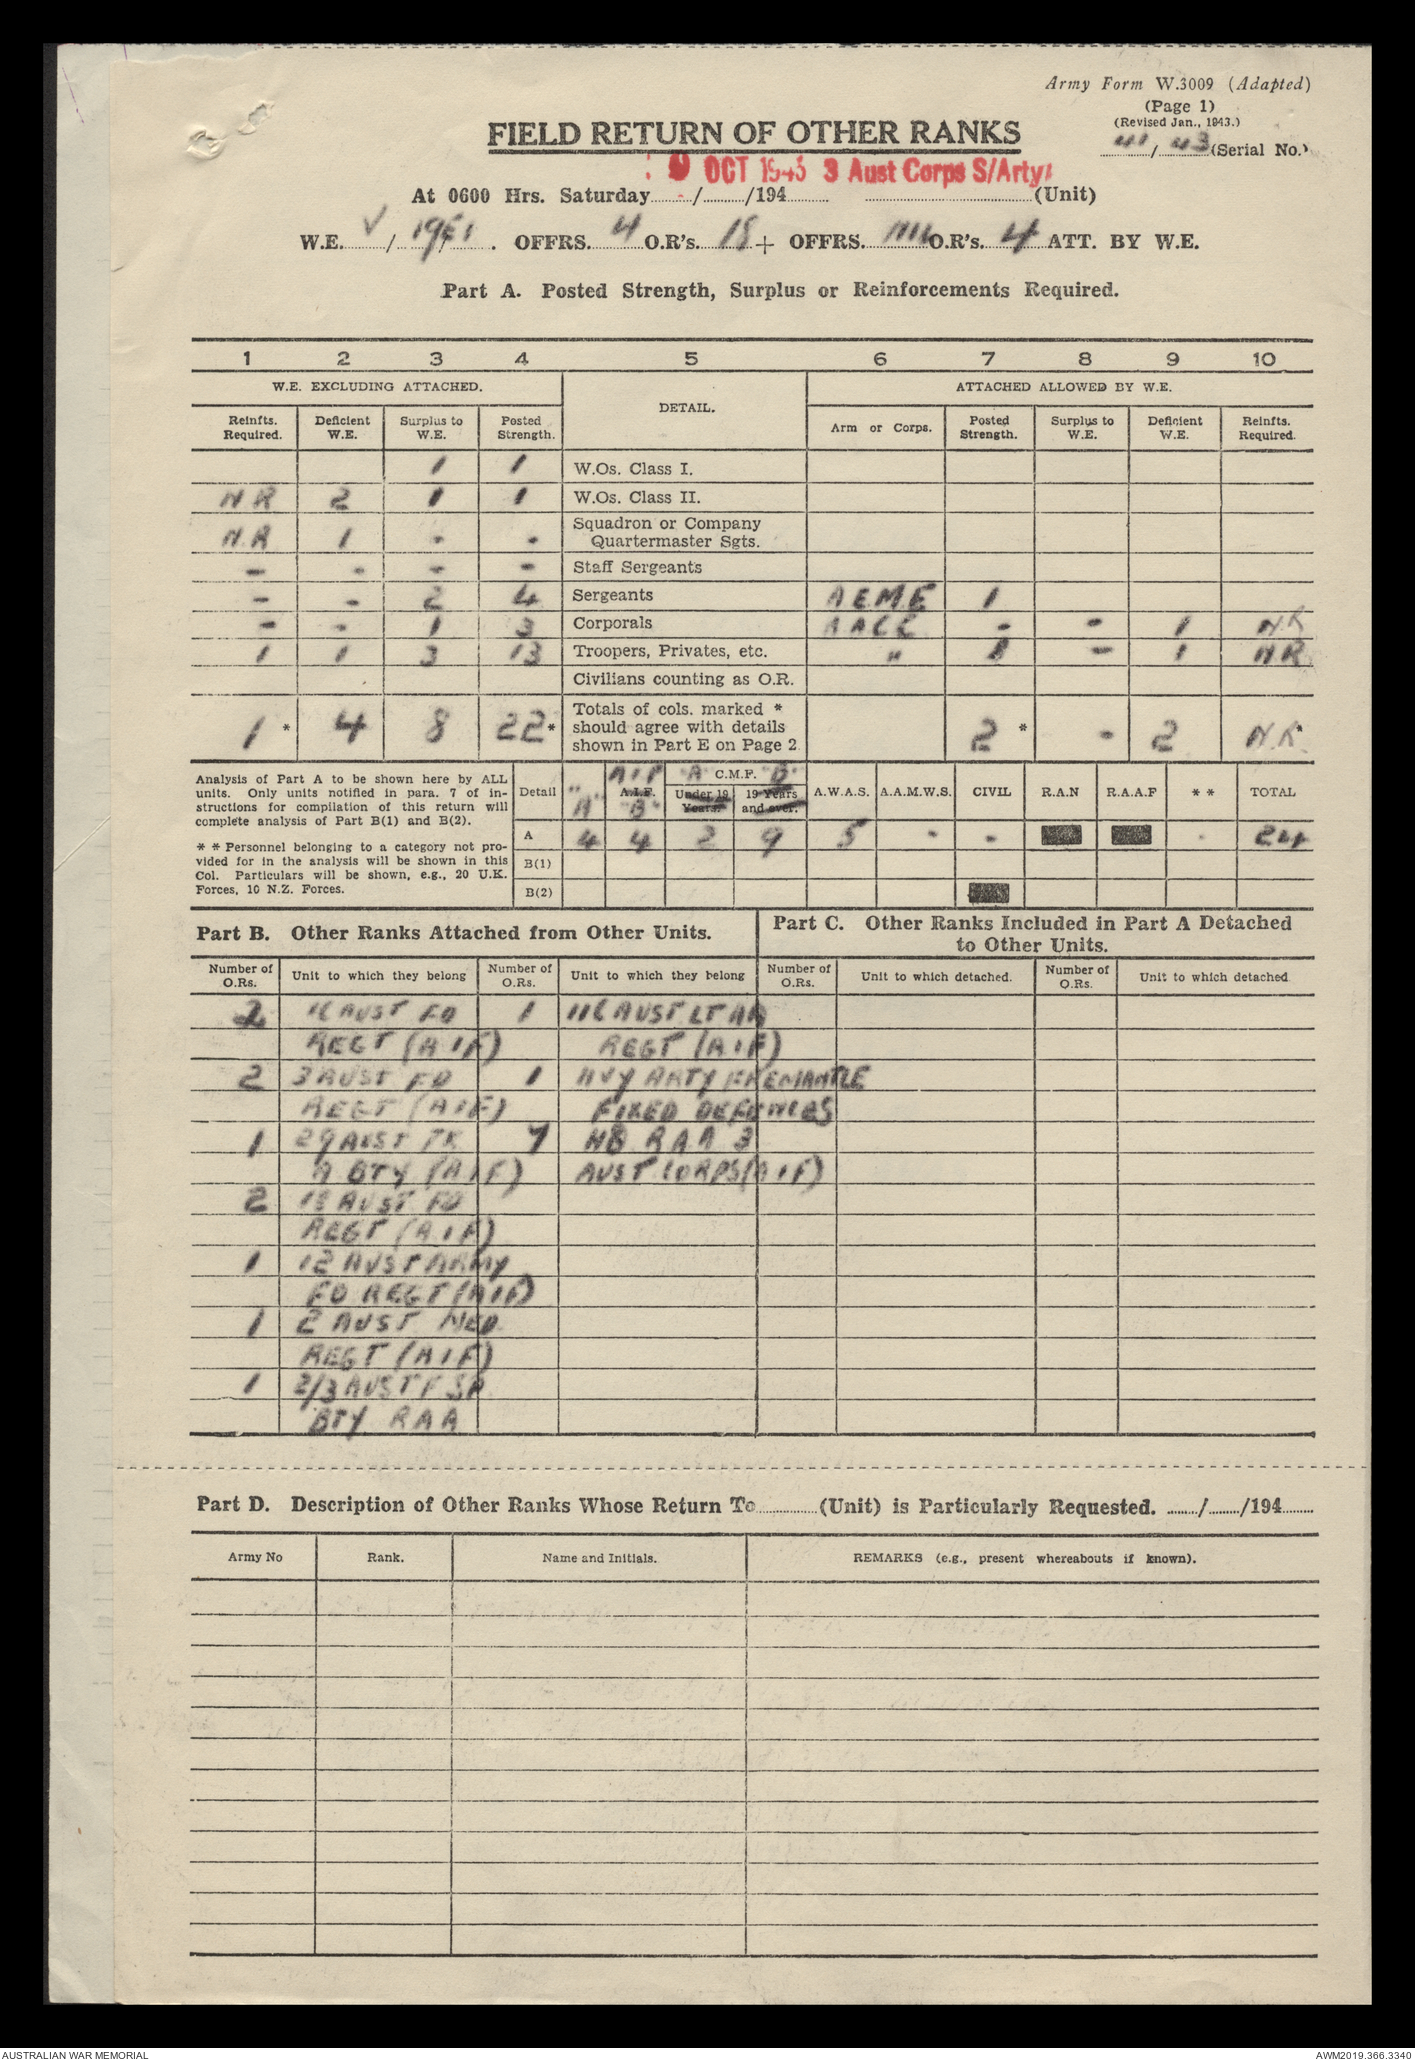 Army Form W.3009 (Adapted)
(Page 1)
(Revised Jan., 1943.)
41/43 (Serial No.)
FIELD RETURN OF OTHER RANKS
9 OCT 1943 3 Aust Corps S/Arty
At 0600 Hrs. Saturday ...../...../194..... (Unit)
W.E. V / OFFRS. 4 O.R's. 18 + OFFRS. NIL O.R's. 4 ATT. BY W.E.
Part A. Posted Strength, Surplus or Reinforcements Required.
1 2 3 4 5 6 7 8 9 10
W.E. EXCLUDING ATTACHED. DETAIL. ATTACHED ALLOWED BY W.E.
Reinfts. Required. Deficient W.E. Surplus to W.E. Posted Strength. Arm or Corps. Posted Strength. Surplus to W.E. Deficient W.E. Reinfts. Required.
1 1 W.Os. Class I.
NR 2 1 1 W.Os. Class II.
NR 1 - - Squadron or Company Quartermaster Sgts.
- - - - Staff Sergeants
- - 2 4 Sergeants AEME 1
- - 1 3 Corporals AACC - - 1 NR
1 1 3 13 Troopers, Privates, etc. " 1 - 1 NR
Civilians counting as O.R.
1 * 4 8 22 * Totals of cols. marked * should agree with details shown in Part E on Page 2 2 * - 2 N.R. *
Analysis of Part A to be shown here by ALL
units. Only units notified in para. 7 of in-
structions for compilation of this return will
complete analysis of Part B(1) and B(2).
* * Personnel belonging to a category not pro-
vided for in the analysis will be shown in this
Col. Particulars will be shown, e.g., 20 U.K.
Forces, 10 N.Z. Forces.
Detail "A" AIF A.I.F. "B" "A" C.M.F. "B" Under 19 Years. 19 Years and over. A.W.A.S. A.A.M.W.S. CIVIL R.A.N R.A.A.F * * TOTAL
A 4 4 2 9 5 - - - 24
B(1)
B(2)
Part B. Other Ranks Attached from Other Units.
Part C. Other Ranks Included in Part A Detached
to Other Units.
Number of O.Rs. Unit to which they belong Number of O.Rs. Unit to which they belong Number of O.Rs. Unit to which detached. Number of O.Rs. Unit to which detached
2 16 AUST FD 1 116 AUST LT AA
REGT (AIF) REGT (AIF)
2 3 AUST FD 1 HVY ARTY FREMANTLE
REGT (AIF) FIXED DEFENCES
1 29 AUST TK 7 HQ RAA 3
A BTY (AIF) AUST CORPS (AIF)
2 18 AUST FD
REGT (AIF)
1 12 AUST ARMY
FD REGT (AIF)
1 2 AUST MED
REGT (AIF)
1 2/3 AUST F SP
BTY RAA
Part D. Description of Other Ranks Whose Return To ............ (Unit) is Particularly Requested. ....../....../194......
Army No Rank. Name and Initials. REMARKS (e.g., present whereabouts if known).
AUSTRALIAN WAR MEMORIAL AWM2019.366.3340